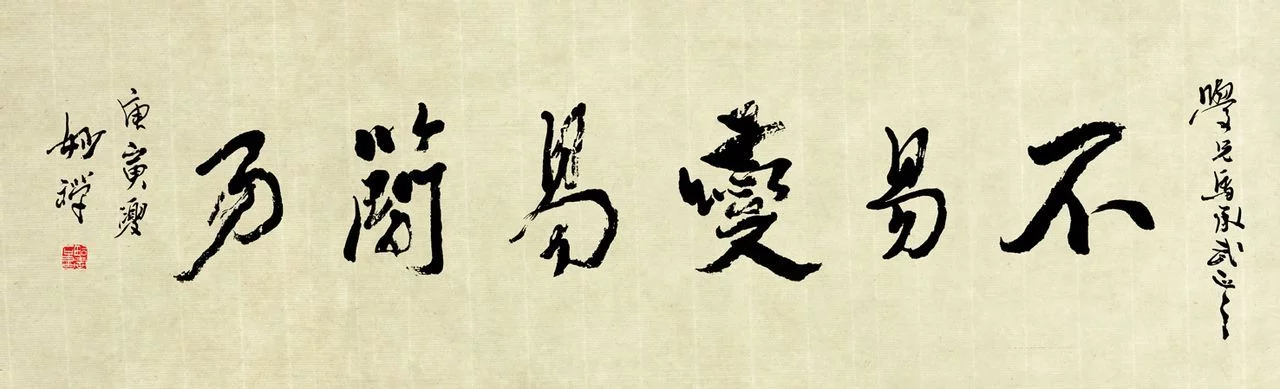 學兄馬承武正之
不易變易簡易
庚寅夏
妙禪